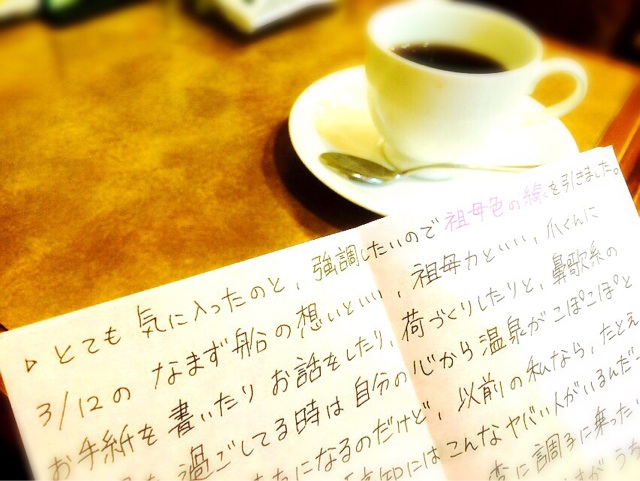 ▷ とても 気に入ったのと、強調したいので 祖母色の線を引きました。
3/12の なまず船の想いといい、祖母力といい、爪くんに
お手紙を 書いたり お話をしたり、荷づくりしたりと、鼻歌系の
過ごしてる時は 自分の心から温泉がこぽこぽと
になるのだけど、以前の私なら、たとえ
知にはこんなヤバい人がいるんだ
変に調子に乗った
が うち